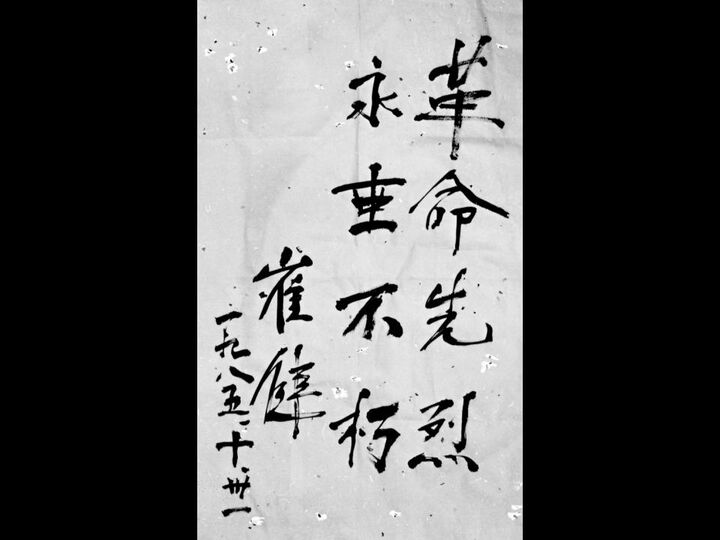 革命先烈
永垂不朽
崔
一九八五、十、卅一